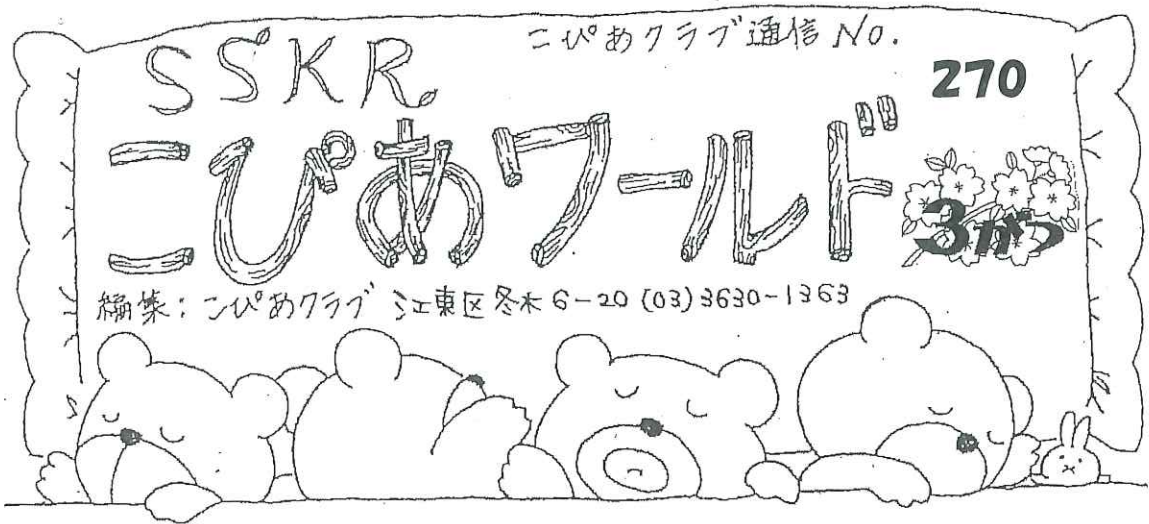 こぴあクラブ通信 No.
270
SSKR
こぴあワールド
3がつ
編集：こぴあクラブ 江東区冬木6-20 (03)3630-1363